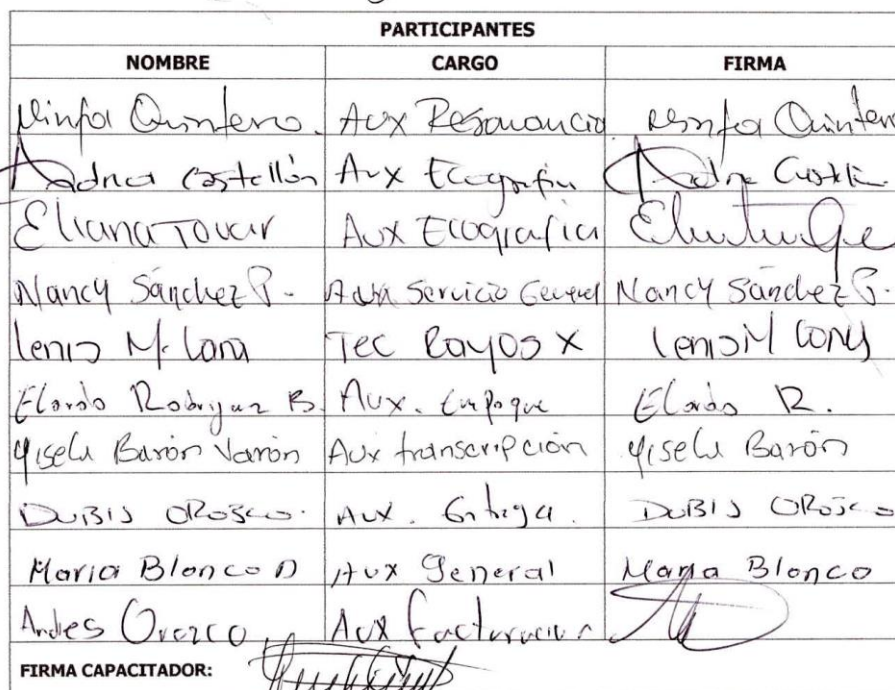 PARTICIPANTES
NOMBRE CARGO FIRMA
Ninfa Quintero. Aux Resonancia Ninfa Quintero
Castellón Aux Ecografia
Eliana Tovar Aux Ecografia
Nancy Sánchez P. Servicio General Nancy Sánchez P.
Lenis M. Lara Tec Rayos X Lenis M
Rodriguez B. Aux. Empaque R.
Gisela Barón Varón Aux transcripción Gisela Barón
DUBIS OROZCO. Aux. Entrega. DUBIS OROZCO
Maria Blanco D Aux General Maria Blanco
Andres Orozco Aux Facturacion
FIRMA CAPACITADOR: